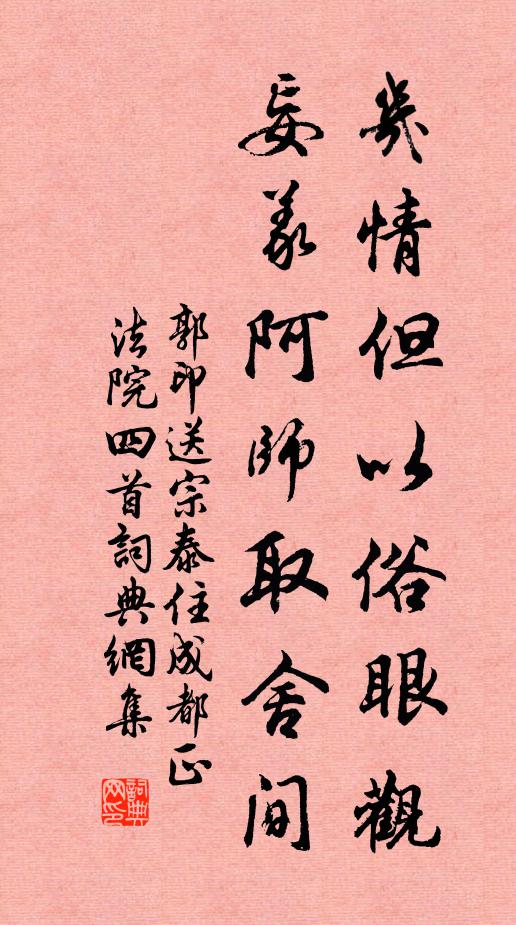 幾情但以俗眼觀
妄義阿師取舍間
郭印送宗泰住成都正
法院四首詞典網集
詞典網印